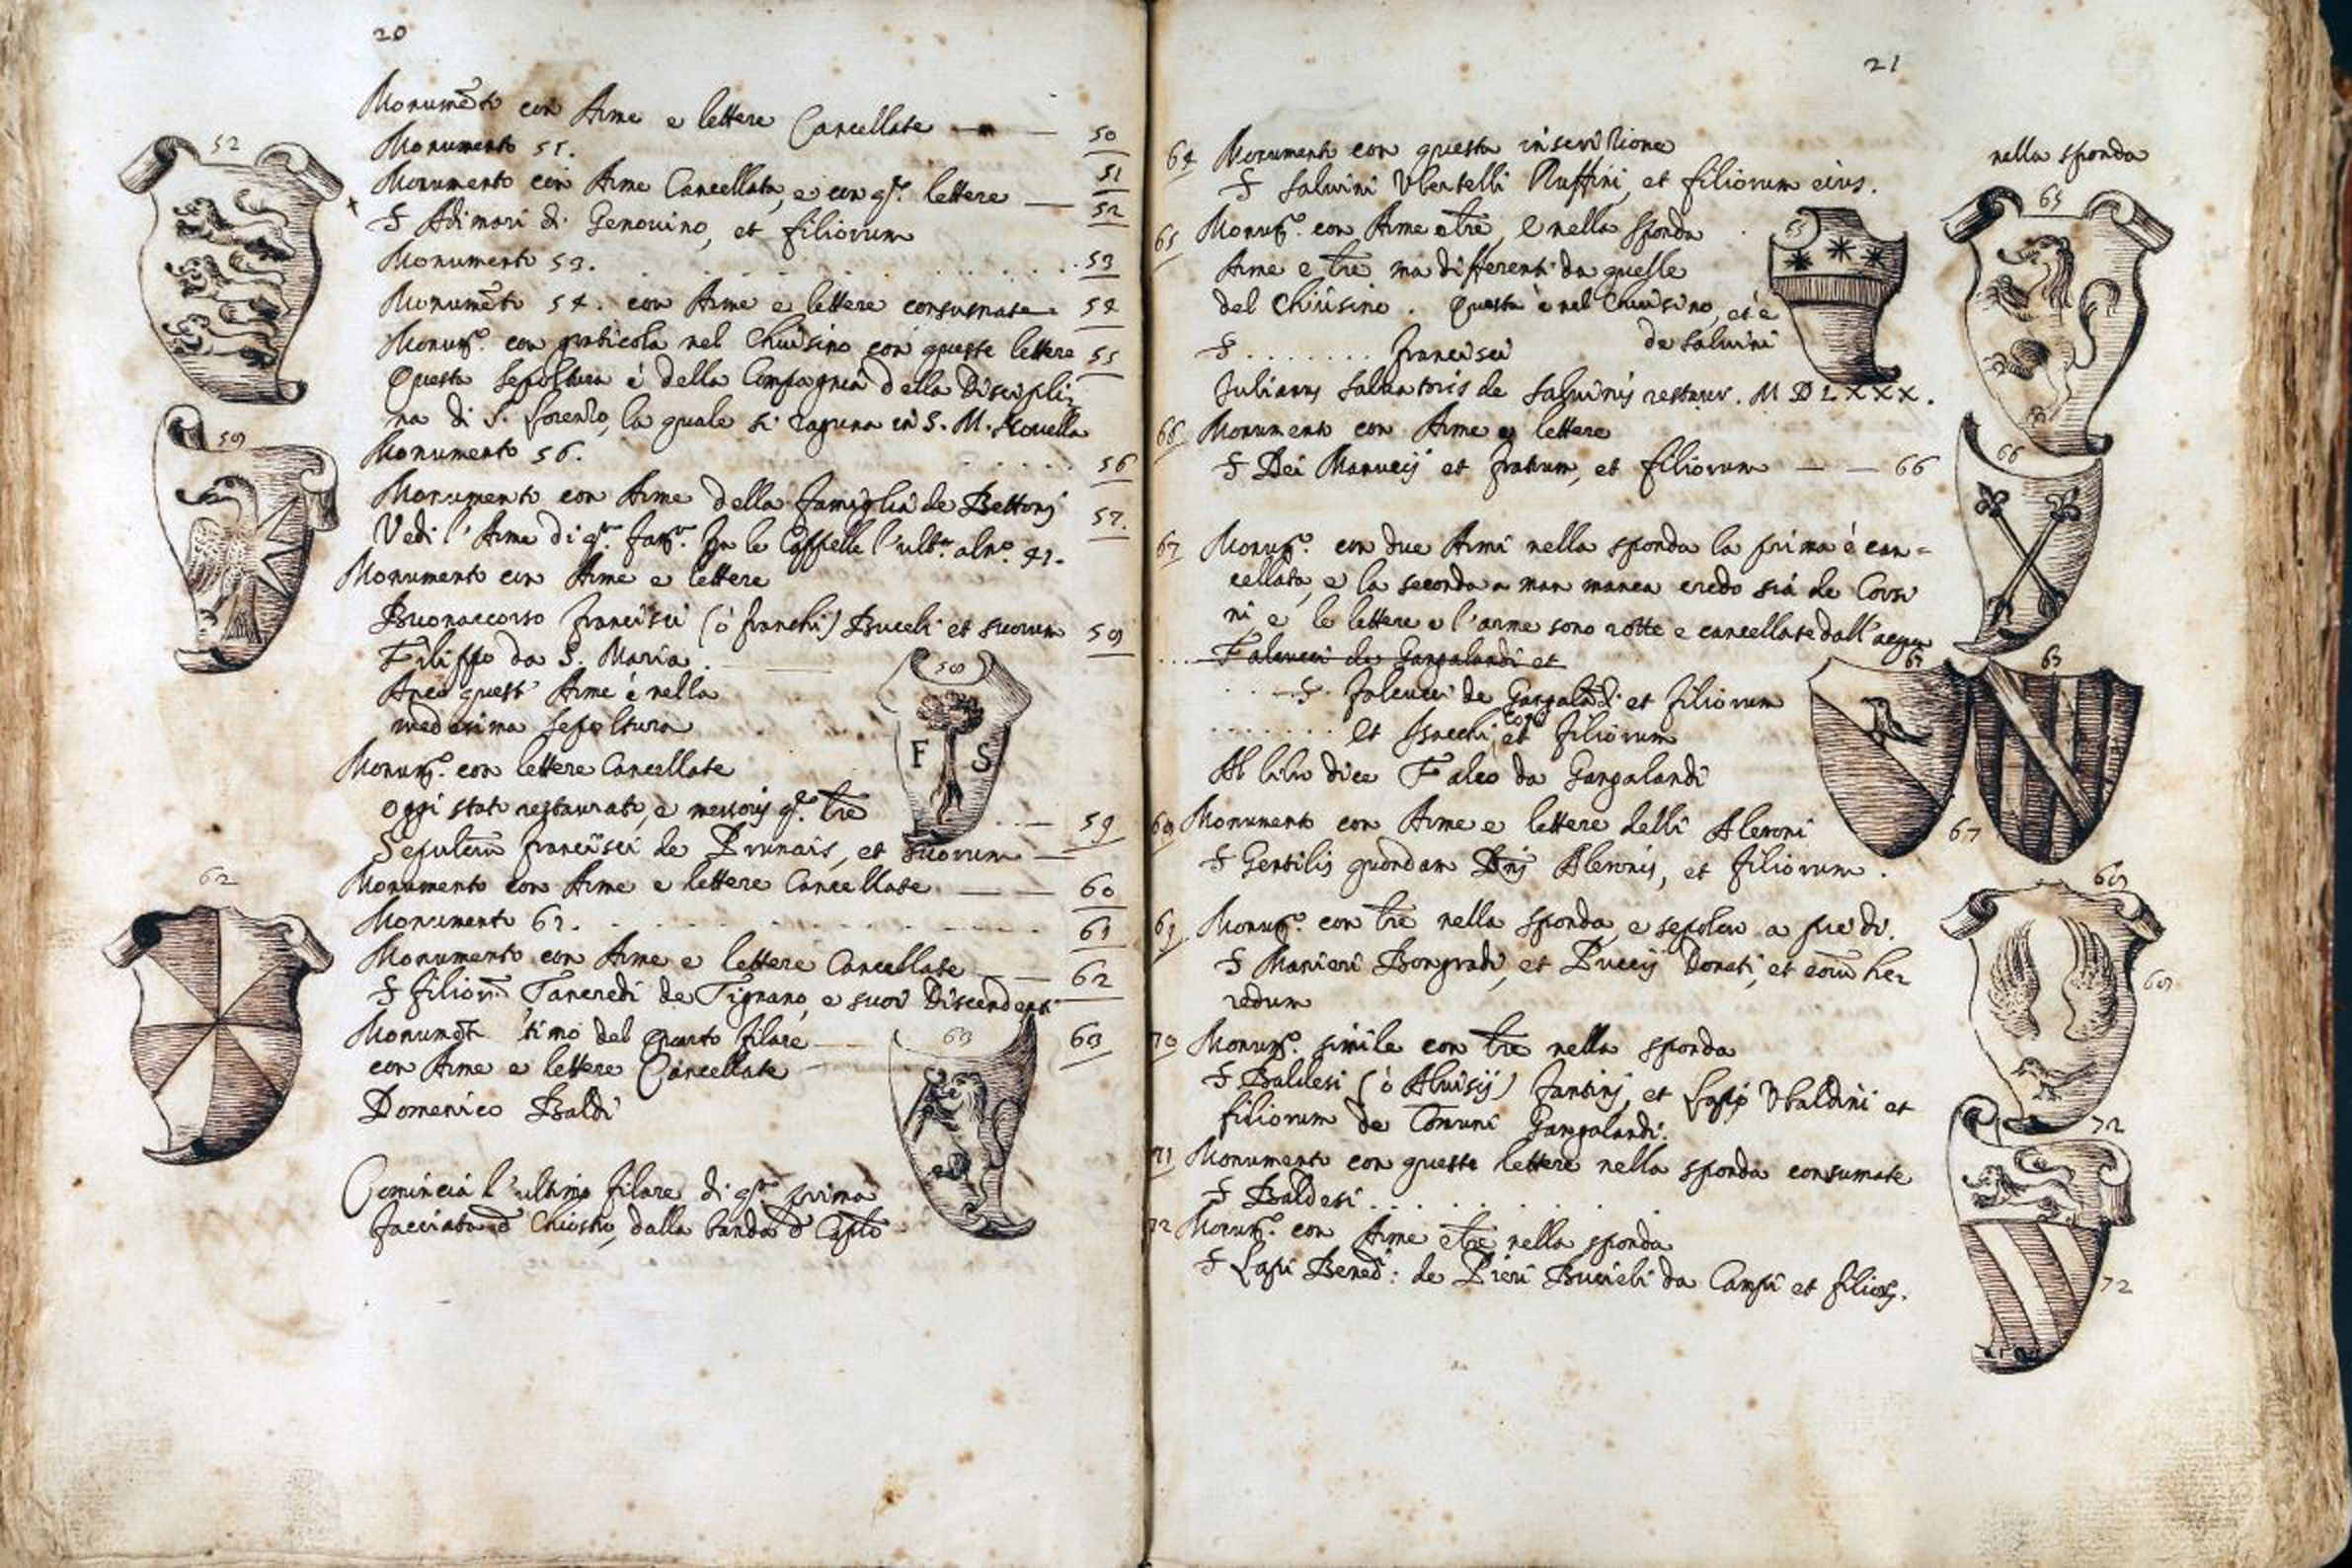 20
Monumēto con Arme e lettere Cancellate 50
Monumento 51. 51
Monumento con Arme Cancellata, e con q.te lettere 52
S Adimari di Genovino, et filiorum
Monumento 53. 53
Monumēto 54. con Arme e lettere consumate 54
Monum.to con graticola nel Chiusino con queste lettere 55
Questa sepoltura è della Compagnia della Discipli-
na di S. Lorenzo, la quale si raguna in S. M. Novella
Monumento 56. 56
Monumento con Arme della famiglia de Bettoni 57.
Vedi l'Arme di q.ta fam.a le Cappelle l'ult.a al n.o 41.
Monumento con Arme e lettere
Buonaccorso Francisci (ò franchi) Buceli et suorum 58
Filippo da S. Maria.
Anco quest' Arme è nella
medesima sepoltura
Monum.to con lettere Cancellate
oggi stato restaurato, e messovi q.te lre 59
Sepulcrū Francisci de Brunais, et suorum
Monumento con Arme e lettere Cancellate 60
Monumento 61. 61
Monumento con Arme e lettere Cancellate 62
S filior. Tancredi de Tignano, e suoi Discendenti
Monumēto timo del quarto filare 63
con Arme e lettere Cancellate
Domenico Baldi
Comincia l'ultimo filare di q.ta prima
facciata d Chiostro, dalla banda d
52
58
58
F S
62
63
21
64 Monumento con questa inscrizione
S Salvini Ubertelli Ruffini, et filiorum eius.
nella sponda
65 Monum.to con Arme e lre, e nella sponda
Arme e lre ma differenti da quelle
del Chiusino. Questa è nel Chiusino, et è
de Salvini
S . . . . . . . . Francisci
Iulianus Salvatoris de Salvinis restaur. M D L X X X.
66 Monumento con Arme e lettere
S Dei Manucij et fratrum, et filiorum 66
67 Monum.to con due Armi nella sponda la prima è can=
cellata, e la seconda a man manca credo sia de Corsi
ni e le lettere e l'arme sono rotte e cancellate dall'acqua
. . . . Falcucci de Gangalandi et
. . . . S. Falcucci de Gangalādi et filiorum
. . . . . . . et Isacchi, et filiorum
Al libro dice Falco da Gangalandi
68 Monumento con Arme e lettere delli Aleroni
S Gentilis quondam Dnj Aleronis, et filiorum.
69 Monum.to con lre nella sponda e sepolcro a piedi.
S Manieri Bongradi, et Puccij Donati, et eorū he-
redum
70 Monum.to simile con lre nella sponda
S Baldesi (ò Aluisij) Fantini, et Lapi Ubaldini et
filiorum de Comuni Gangalandi.
71 Monumento con queste lettere nella sponda consumate
S Baldesi . . . . . .
72 Monum.to con Arme e lre nella sponda
S Lapi Bened: de Pieri Bucieli da Campi et filior.
65
65
66
67
67
68
68
72
72